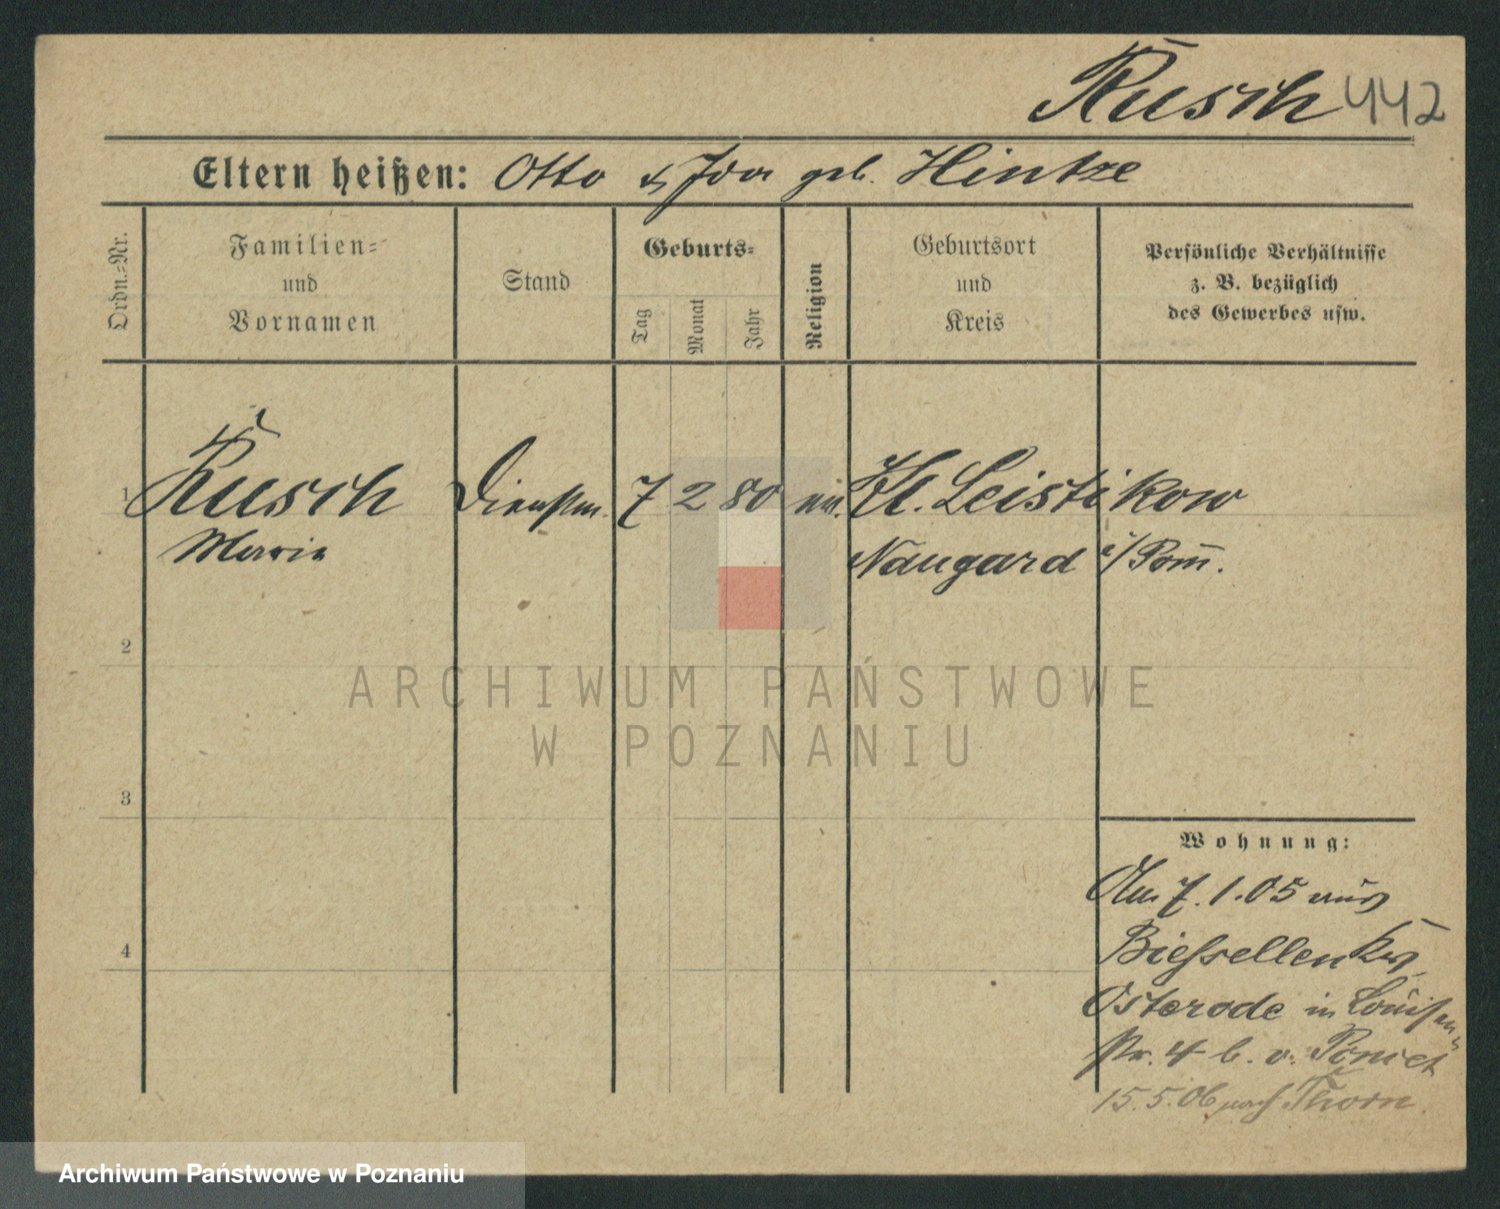 Rusch 442
Eltern heißen: Otto & Ida geb. Hintze
Ordn.=Nr.
Familien=
und
Vornamen
Stand
Geburts=
Tag
Monat
Jahr
Religion
Geburtsort
und
Kreis
Persönliche Verhältnisse
z. B. bezüglich
des Gewerbes usw.
1 Rusch Dienstm. 7 2 80 ev. Kl. Leistikow
Marie Naugard i/Pom.
2
3
4
Wohnung:
Am 7.1.05 aus
Biessellen Krs.
Osterode in Louisen=
str. 4 b. v.
15.5.06 nach Thorn
ARCHIWUM PAŃSTWOWE
W POZNANIU
Archiwum Państwowe w Poznaniu